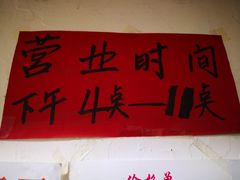 营业时间
下午4点—11点